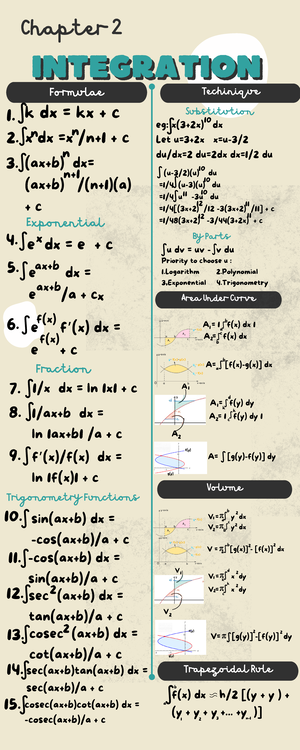 Chapter 2
INTEGRATION
Formulae
1. ∫k dx = kx + c
2. ∫xⁿdx = xⁿ/n+1 + c
3. ∫(ax+b)ⁿ dx=
(ax+b)ⁿ⁺¹/(n+1)(a)
+ c
Exponential
4. ∫eˣ dx = e + c
5. ∫eᵃˣ⁺ᵇ dx =
eᵃˣ⁺ᵇ/a + cx
6. ∫e^f(x) f'(x) dx =
e^f(x) + c
Fraction
7. ∫1/x dx = ln |x| + c
8. ∫1/ax+b dx =
ln |ax+b| /a + c
9. ∫f'(x)/f(x) dx =
ln |f(x)| + c
Trigonometry Functions
10. ∫sin(ax+b) dx =
-cos(ax+b)/a + c
11. ∫-cos(ax+b) dx =
sin(ax+b)/a + c
12. ∫sec²(ax+b) dx =
tan(ax+b)/a + c
13. ∫cosec²(ax+b) dx =
cot(ax+b)/a + c
14. ∫sec(ax+b)tan(ax+b) dx =
sec(ax+b)/a + c
15. ∫cosec(ax+b)cot(ax+b) dx =
-cosec(ax+b)/a + c
Technique
Substitution
eg:∫x(3+2x)¹⁰ dx
Let u=3+2x x=u-3/2
du/dx=2 du=2dx dx=1/2 du
∫(u-3/2)(u)¹⁰ du
=1/4∫(u-3)(u)¹⁰ du
=1/4∫u¹¹ -3u¹⁰ du
=1/4[(3+2x)¹²/12 -3(3+2x)¹¹/11] + c
=1/48(3+2x)¹² -3/44(3+2x)¹¹ + c
By Parts
∫u dv = uv - ∫v du
Priority to choose u :
1.Logarithm 2.Polynomial
3.Exponential 4.Trigonometry
Area Under Curve
A₁ = |∫f(x) dx |
A₂=∫f(x) dx
A=∫[f(x)-g(x)] dx
A₁
A₁=∫f(y) dy
A₂= |∫f(y) dy |
A₂
A= ∫[g(y)-f(y)] dy
Volume
V₁=π∫y² dx
V₂=π∫y² dx
V =π∫[g(x)]²- [f(x)]² dx
V₁
V₁=π∫x² dy
V₂=π∫x² dy
V₂
V=π∫[g(y)]²-[f(y)]² dy
Trapezoidal Rule
∫f(x) dx ≈ h/2 [(y + y ) +
(y₁ + y₂ + y₃+... +yₙ₋₁ )]